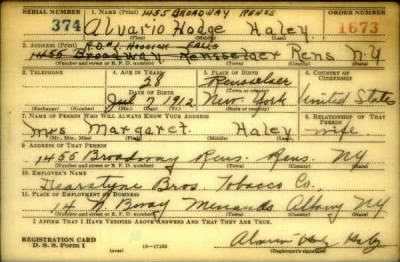 SERIAL NUMBER 1. NAME (Print) 1455 BROADWAY RENSS ORDER NUMBER
374 Alvario Hodge Haley 1673
2. ADDRESS (Print) R.D #1 Hoosick Falls
1455 Broadway Rensselaer Rens N.Y
(Number and street or R. F. D. number) (Town) (County) (State)
3. TELEPHONE 4. AGE IN YEARS 5. PLACE OF BIRTH 6. COUNTRY OF CITIZENSHIP
28 Rensselaer
DATE OF BIRTH (Town or county)
July 7 1912 New York United States
(Exchange) (Number) (Mo.) (Day) (Yr.) (State or country)
7. NAME OF PERSON WHO WILL ALWAYS KNOW YOUR ADDRESS 8. RELATIONSHIP OF THAT PERSON
Mrs. Margaret Haley wife
(Mr., Mrs., Miss) (First) (Middle) (Last)
9. ADDRESS OF THAT PERSON
1455 Broadway Rens. Rens. NY
(Number and street or R. F. D. number) (Town) (County) (State)
10. EMPLOYER'S NAME
Dearstyne Bros. Tobacco Co.,
11. PLACE OF EMPLOYMENT OR BUSINESS
14 N Bway Menands Albany NY
(Number and street or R. F. D. number) (Town) (County) (State)
I AFFIRM THAT I HAVE VERIFIED ABOVE ANSWERS AND THAT THEY ARE TRUE.
REGISTRATION CARD
D. S. S. Form 1 (over) 16—17105 (Registrant's signature)